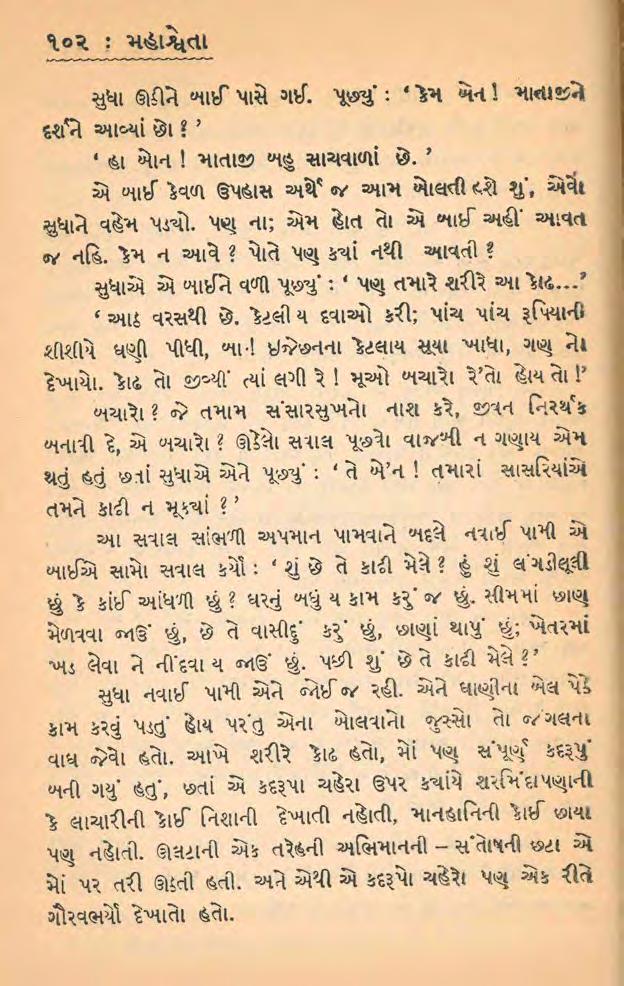 ૧૦૨ : મહાશ્વેતા
સુધા ઊઠીને બાઈ પાસે ગઈ. પૂછ્યું : ‘ કેમ બેન ! માતાજીને
દર્શને આવ્યાં છો ? ’
‘ હા બેન ! માતાજી બહુ સાચવાળાં છે. ’
એ બાઈ કેવળ ઉપહાસ અર્થે જ આમ બોલતી હશે શું, એવો
સુધાને વહેમ પડ્યો. પણ ના; એમ હોત તો એ બાઈ અહીં આવત
જ નહિ. કેમ ન આવે ? પોતે પણ કયાં નથી આવતી ?
સુધાએ એ બાઈને વળી પૂછ્યું : ‘ પણ તમારે શરીરે આ કોઢ...’
‘ આઠ વરસથી છે. કેટલી ય દવાઓ કરી; પાંચ પાંચ રૂપિયાની
શીશીયે ઘણી પીધી, બા ! ઇજેછનના કેટલાય સૂયા ખાધા, ગણ નો
દેખાયો. કોઢ તો જીવ્યીં ત્યાં લગી રે ! મૂઓ બચારો રે’તો હોય તો !’
બચારો ? જે તમામ સંસારસુખનો નાશ કરે, જીવન નિરર્થક
બનાવી દે, એ બચારો ? ઊઠેલો સવાલ પૂછવો વાજબી ન ગણાય એમ
થતું હતું છતાં સુધાએ એને પૂછ્યું : ‘ તે બે’ન ! તમારાં સાસરિયાંએ
તમને કાઢી ન મૂક્યાં ?’
આ સવાલ સાંભળી અપમાન પામવાને બદલે નવાઈ પામી એ
બાઈએ સામો સવાલ કર્યો : ‘ શું છે તે કાઢી મેલે ? હું શું લંગડીલૂલી
છું કે કાંઈ આંધળી છું ? ઘરનું બધું ય કામ કરું જ છું. સીમમાં છાણ
મેળવવા જાઉં છું, છે તે વાસીદું કરું છું, છાણાં થાપું છું; ખેતરમાં
ખડ લેવા ને નીંદવા ય જાઉં છું. પછી શું છે તે કાઢી મેલે ?’
સુધા નવાઈ પામી એને જોઈ જ રહી. એને ઘાણીના બેલ પેઠે
કામ કરવું પડતું હોય પરંતુ એના બોલવાનો જુસ્સો તો જંગલના
વાઘ જેવો હતો. આખે શરીરે કોઢ હતો, મોં પણ સંપૂર્ણ કદરૂપું
બની ગયું હતું, છતાં એ કદરૂપા ચહેરા ઉપર ક્યાંયે શરમિંદાપણાની
કે લાચારીની કોઈ નિશાની દેખાતી નહોતી, માનહાનિની કોઈ છાયા
પણ નહોતી. ઊલટાની એક તરેહની અભિમાનની – સંતોષની છટા એ
મોં પર તરી ઊઠતી હતી. અને એથી એ કદરૂપો ચહેરો પણ એક રીતે
ગૌરવભર્યો દેખાતો હતો.